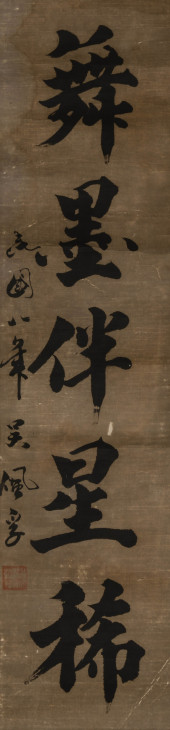 舞墨伴星稀
民國八年 吴佩孚